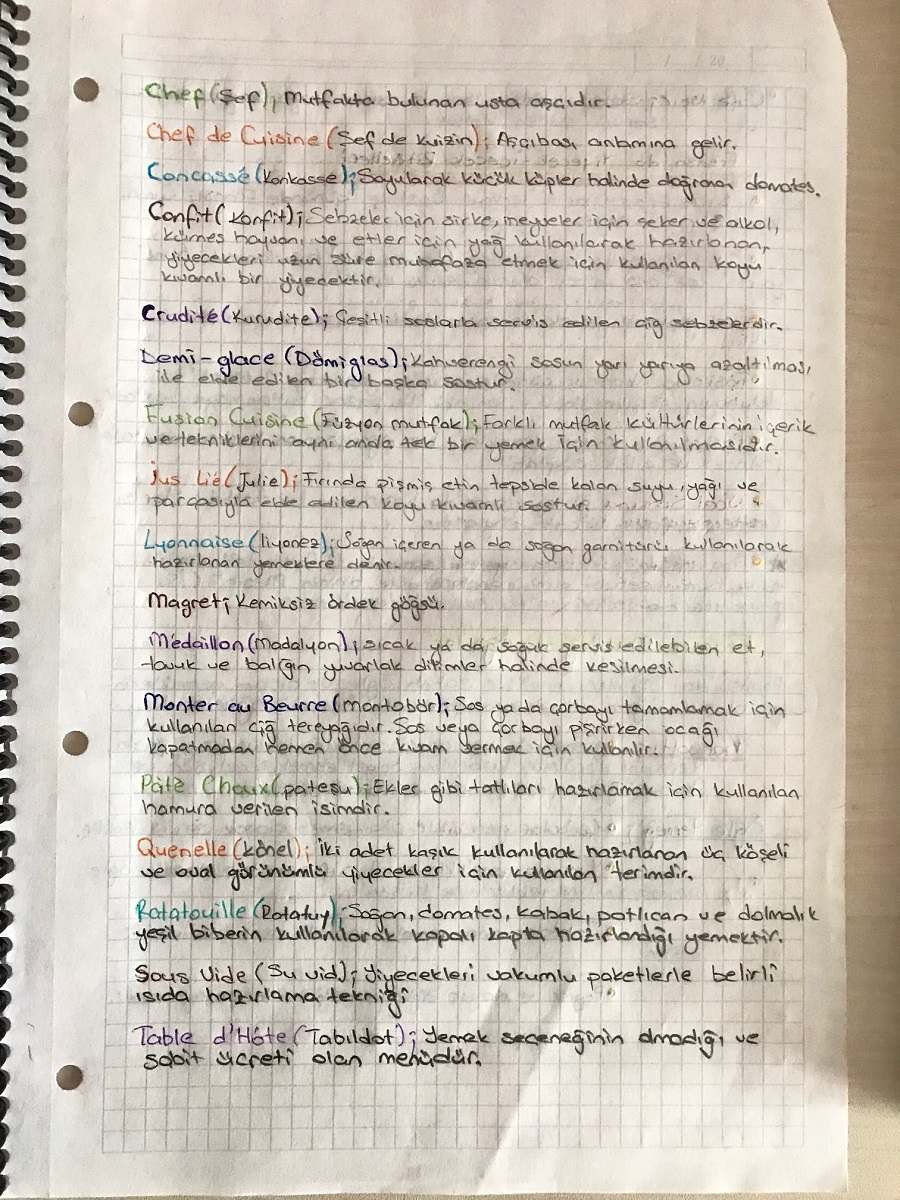 Chef (Şef); Mutfakta bulunan usta aşçıdır.
Chef de Cuisine (Şef de kuizin); Aşçıbaşı anlamına gelir.
Concassé (Konkasse); Soyularak küçük küpler halinde doğranan domates.
Confit (Konfit); Sebzeler için sirke, meyveler için şeker ve alkol,
kümes hayvanı ve etler için yağ kullanılarak hazırlanan,
yiyecekleri uzun süre muhafaza etmek için kullanılan koyu
kıvamlı bir yiyecektir.
Crudité (Kurudite); Çeşitli soslarla servis edilen çiğ sebzelerdir.
Demi-glace (Dömiglas); Kahverengi sosun yarı yarıya azaltılması
ile elde edilen bir başka sostur.
Fusion Cuisine (Füzyon mutfak); Farklı mutfak kültürlerinin içerik
ve tekniklerini aynı anda tek bir yemek için kullanılmasıdır.
Jus Lié (Julie); Fırında pişmiş etin tepside kalan suyu, yağı ve
parçasıyla elde edilen koyu kıvamlı sostur.
Lyonnaise (liyonez); Soğan içeren ya da soğan garnitürü kullanılarak
hazırlanan yemeklere denir.
Magret; Kemiksiz ördek göğsü.
Médaillon (Madalyon); Sıcak ya da soğuk servis edilebilen et,
tavuk ve balığın yuvarlak dilimler halinde kesilmesi.
Monter au Beurre (montobör); Sos ya da çorbayı tamamlamak için
kullanılan çiğ tereyağıdır. Sos veya çorbayı pişirirken ocağı
kapatmadan hemen önce kıvam vermek için kullanılır.
Pâte Choux (pateşu); Ekler gibi tatlıları hazırlamak için kullanılan
hamura verilen isimdir.
Quenelle (könel); İki adet kaşık kullanılarak hazırlanan üç köşeli
ve oval görünümlü yiyecekler için kullanılan terimdir.
Ratatouille (Ratatuy); Soğan, domates, kabak, patlıcan ve dolmalık
yeşil biberin kullanılarak kapalı kapta hazırlandığı yemektir.
Sous Vide (Su vid); Yiyecekleri vakumlu paketlerle belirli
ısıda hazırlama tekniği
Table d'Hôte (Tabıldot); Yemek seçeneğinin olmadığı ve
sabit ücreti olan menüdür.